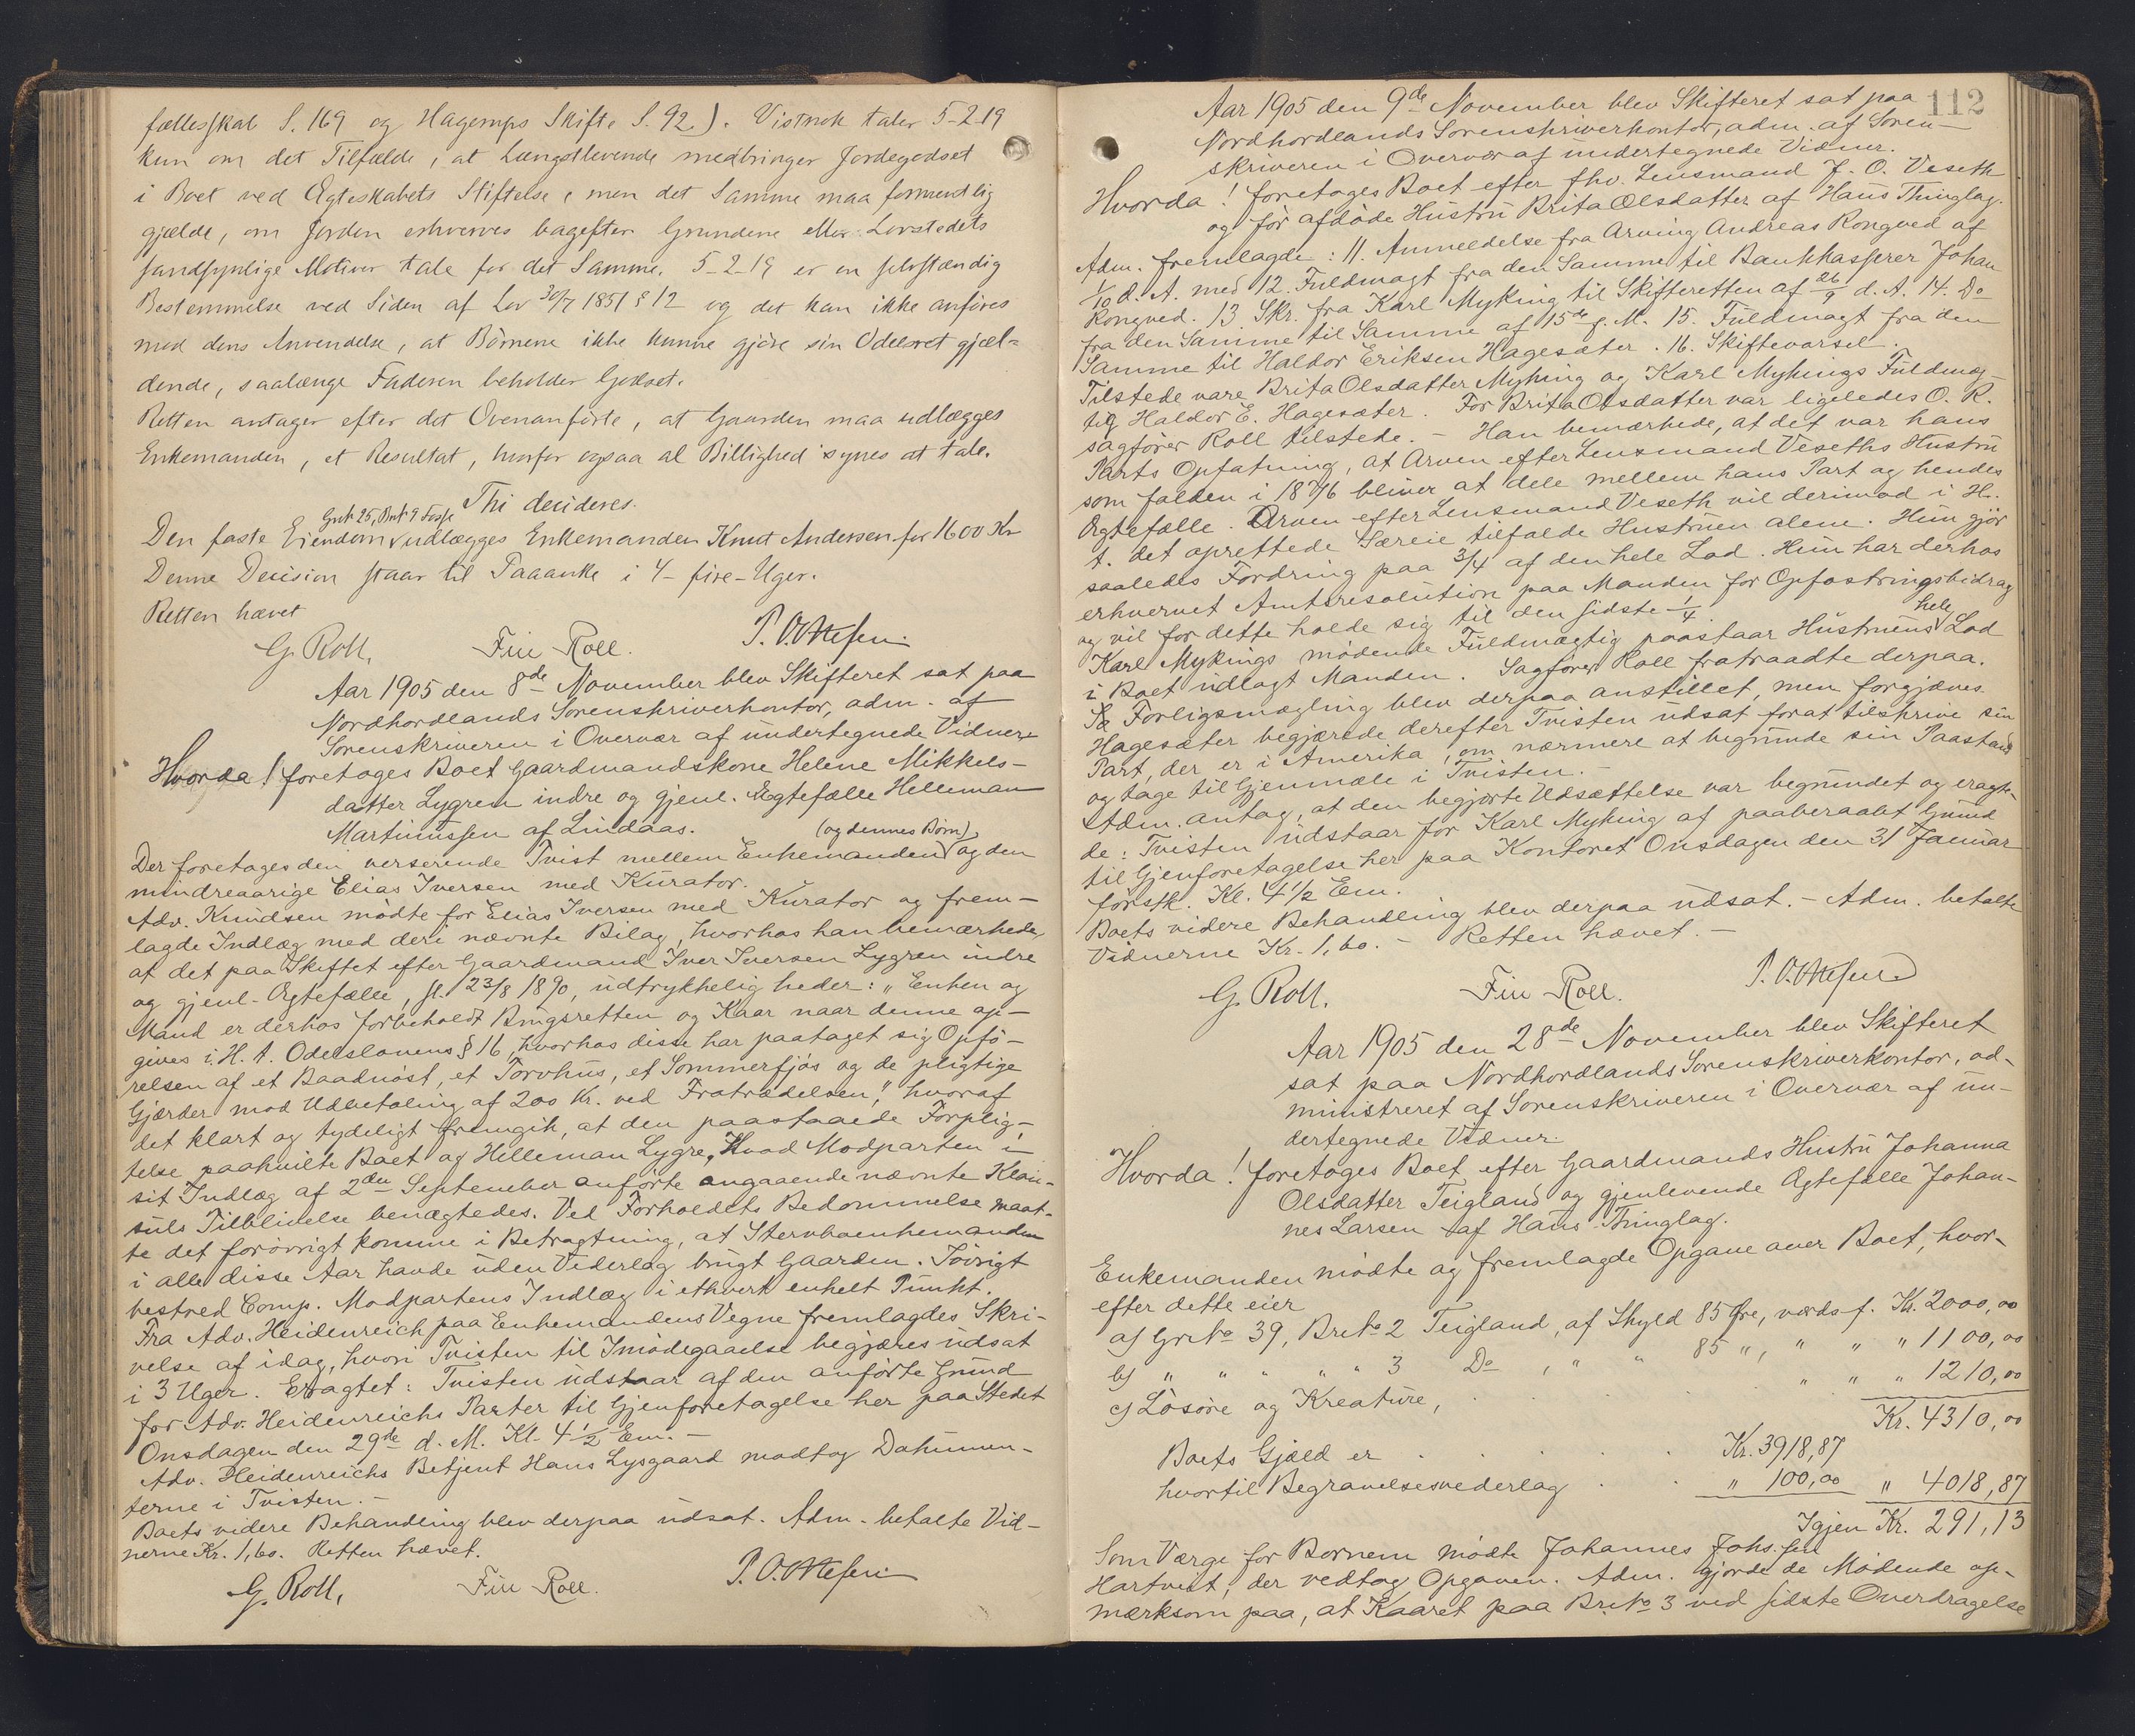 fællesskab S. 169 og Hagerups Skifte S. 92). Vistnok taler 5-2-19
kun om det Tilfælde, at Længstlevende medbringer Jordegodset
i Boet ved Egteskabets Stiftelse, men det Samme maa formentlig
gjælde, om Jorden erhverves bagefter. Grundene eller Lovstedets
sandsynlige Motiver tale for det Samme. 5-2-19 er en selvstændig
Bestemmelse ved Siden af Lov 30/7 1851 § 12 og det kan ikke anføres
mod dens Anvendelse, at Børnene ikke kunne gjøre sin Odelsret gjæl-
dende, saalænge Faderen beholder Godset.
Retten antager efter det Ovenanførte, at Gaarden maa udlægges
Enkemanden, et Resultat, hvorfor ogsaa al Billighed synes at tale.
Thi decideres.
Gnr. 25, Bnr. 9 Fosse
Den faste Eiendom udlægges Enkemanden Knut Andersen for 1600 Kr
Denne Decision staar til Paaanke i 4-fire-Uger.
Retten hævet
G. Roll. Fin Roll. P. O. Ottesen
Aar 1905 den 8de November blev Skifteret sat paa
Nordhordlands Sorenskriverkontor, adm. af
Sorenskriveren i Overvær af undertegnede Vidner.
Hvorda! foretoges Boet Gaardmandskone Helene Mikkels-
datter Lygren indre og gjenl. Ægtefælle Helleman
Martinussen af Lindaas.
(og dennes Børn)
Der foretoges den verserende Tvist mellem Enkemanden og den
mindreaarige Elias Iversen med Kurator.
Adv. Knudsen mødte for Elias Iversen med Kurator og frem-
lagde Indlæg med deri nævnte Bilag, hvorhos han bemærkede,
at det paa Skiftet efter Gaardmand Iver Iversen Lygren indre
og gjenl. Ægtefælle, sl. 23/8 1890, udtrykkelig heder: „Enken og
Mand er derhos forbeholdt Brugsretten og Kaar naar denne op-
gives i H. t. Odelslovens § 16, hvorhos disse har paataget sig Opfø-
relsen af et Baadnøst, et Torvhus, et Sommerfjøs og de pligtige
Gjærder mod Udbetaling af 200 Kr. ved Fratrædelsen," hvoraf
det klart og tydeligt fremgik, at den paastaaede Forplig-
telse paahvilte Boet og Helleman Lygre. Hvad Modparten i
sit Indlæg af 2den September anførte angaaende nævnte Klau-
suls Tilblivelse benægtedes. Ved Forholdets Bedømmelse maat-
te det forøvrigt komme i Betragtning, at Stervboenkemanden
i alle disse Aar havde uden Vederlag brugt Gaarden. Iøvrigt
bestred Comp. Modpartens Indlæg i ethvert enkelt Punkt.
Fra Adv. Heidenreich paa Enkemandens Vegne fremlagdes Skri-
velse af idag, hvori Tvisten til Imødegaaelse begjæres udsat
i 3 Uger. Eragtet: Tvisten udstaar af den anførte Grund
for Adv. Heidenreichs Parter til Gjenforetagelse her paa Stedet
Onsdagen den 29de d. M. Kl. 4½ Em. —
Adv. Heidenreichs Betjent Hans Lysgaard modtog Dokumen-
terne i Tvisten. —
Boets videre Behandling blev derpaa udsat. Adm. betalte Vid-
nerne Kr. 1,60. Retten hævet.
G. Roll. Fin Roll. P. O. Ottesen
112
Aar 1905 den 9de November blev Skifteret sat paa
Nordhordlands Sorenskriverkontor, adm. af Soren-
skriveren i Overvær af undertegnede Vidner.
Hvorda! foretoges Boet efter fhv. Lensmand J. O. Veseth
og før afdøde Hustru Brita Olsdatter af Haus Thinglag.
Adm. fremlagde: 11. Anmeldelse fra Arving Andreas Rongved af
1/10 d. A. med 12. Fuldmagt fra den Samme til Bankkasserer Johan
Rongved. 13 Skr. fra Karl Myking til Skifteretten af 26/9 d. A. 14. Do
fra den Samme til Samme af 15de f. M. 15. Fuldmagt fra den
Samme til Haldor Eriksen Hagesæter. 16. Skiftevarsel.
Tilstede vare Brita Olsdatter Myking og Karl Mykings Fuldmæg-
tig Haldor E. Hagesæter. For Brita Olsdatter var ligeledes O. R.
sagfører Roll tilstede. — Han bemærkede, at det var hans
Parts Opfatning, at Arven efter Lensmand Veseths Hustru
som falden i 1876 bliver at dele mellem hans Part og hendes
Ægtefælle. Arven efter Lensmand Veseth vil derimod i H.
t. det oprettede Særeie tilfalde Hustruen alene. Hun gjør
saaledes Fordring paa 3/4 af den hele Lod. Hun har derhos
erhvervet Amtsresolution paa Manden for Opfostringsbidrag
og vil for dette holde sig til den sidste 1/4.
hele
Karl Mykings mødende Fuldmægtig paastaar Hustruens Lod
i Boet udlagt Manden. Sagfører Roll fratraadte derpaa.
Forligsmægling blev derpaa anstillet, men forgjæves.
Hagesæter begjærede derefter Tvisten udsat forat tilskrive sin
Part, der er i Amerika, om nærmere at begrunde sin Paastand
og tage til Gjenmæle i Tvisten. —
Adm. antog, at den begjærte Udsættelse var begrundet og eragte-
de: Tvisten udstaar for Karl Myking af paaberaabt Grund
til Gjenforetagelse her paa Kontoret Onsdagen den 31 Januar
førstk. Kl. 4½ Em.
Boets videre Behandling blev derpaa udsat. — Adm. betalte
Vidnerne Kr. 1,60. — Retten hævet. —
G. Roll. Fin Roll. P. O. Ottesen
Aar 1905 den 28de November blev Skifteret
sat paa Nordhordlands Sorenskriverkontor, ad-
ministreret af Sorenskriveren i Overvær af un-
dertegnede Vidner.
Hvorda! foretoges Boet efter Gaardmands Hustru Johanna
Olsdatter Teigland og gjenlevende Ægtefælle Johan-
nes Larsen af Haus Thinglag.
Enkemanden mødte og fremlagde Opgave over Boet, hvor-
efter dette eier
a) Grno 39, Brno 2 Teigland, af Skyld 85 Øre, værds f. Kr. 2000,00
b) " " " " 3 Do , " " 85 ", " " " 1100,00
c) Løsøre og Kreature, . . . " " " 1210,00
Kr. 4310,00
Boets Gjæld er . . . . Kr. 3918,87
hvortil Begravelsesvederlag . . " 100,00 " 4018,87
Igjen Kr. 291,13
Som Værge for Børnene mødte Johannes Johs.sen
Hartveit, der vedtog Opgaven. Adm. gjorde de Mødende op-
mærksom paa, at Kaaret paa Brno 3 ved sidste Overdragelse